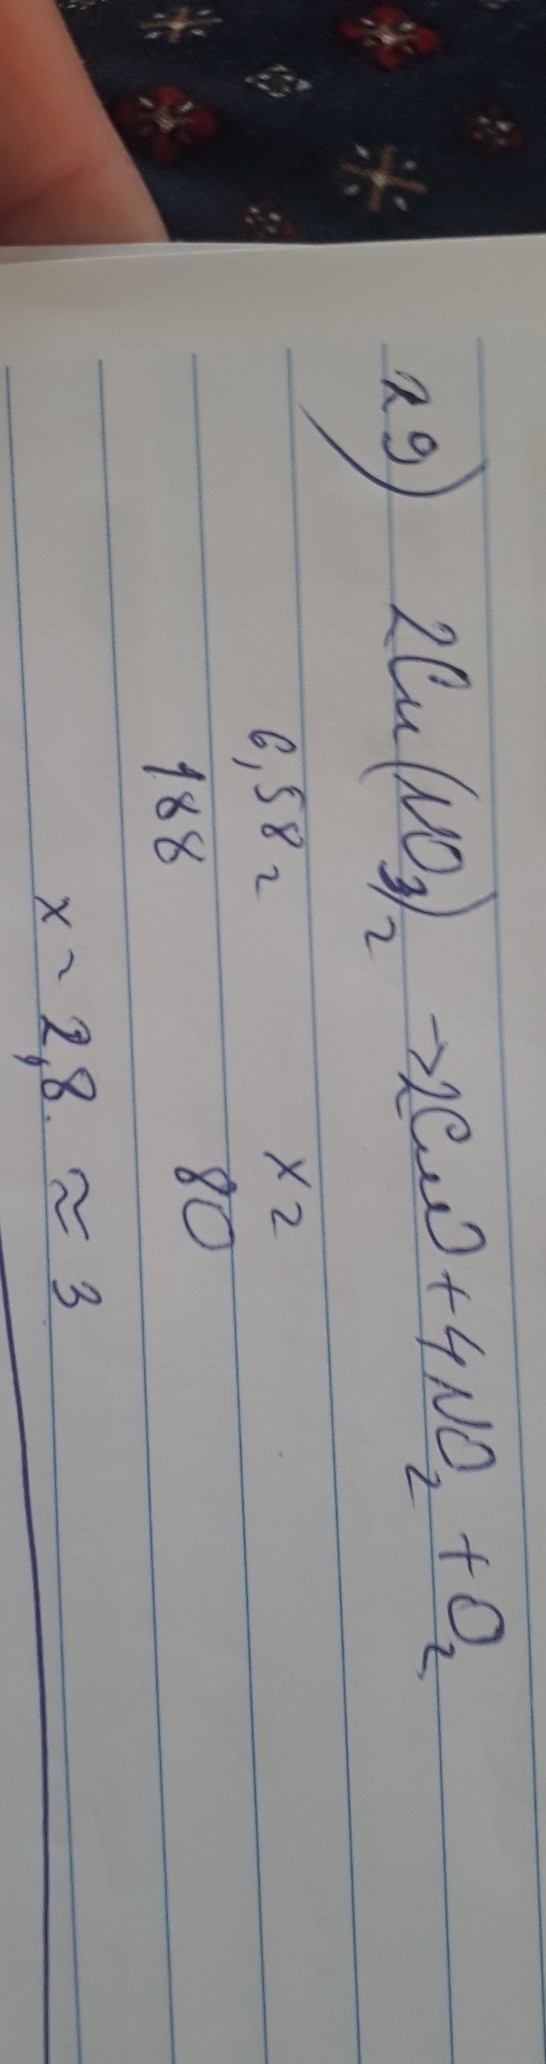 29) 2Cu(NO3)2 → 2CuO + 4NO2 + O2
6,58 г x г
188 80
x ~ 2,8. ≈ 3